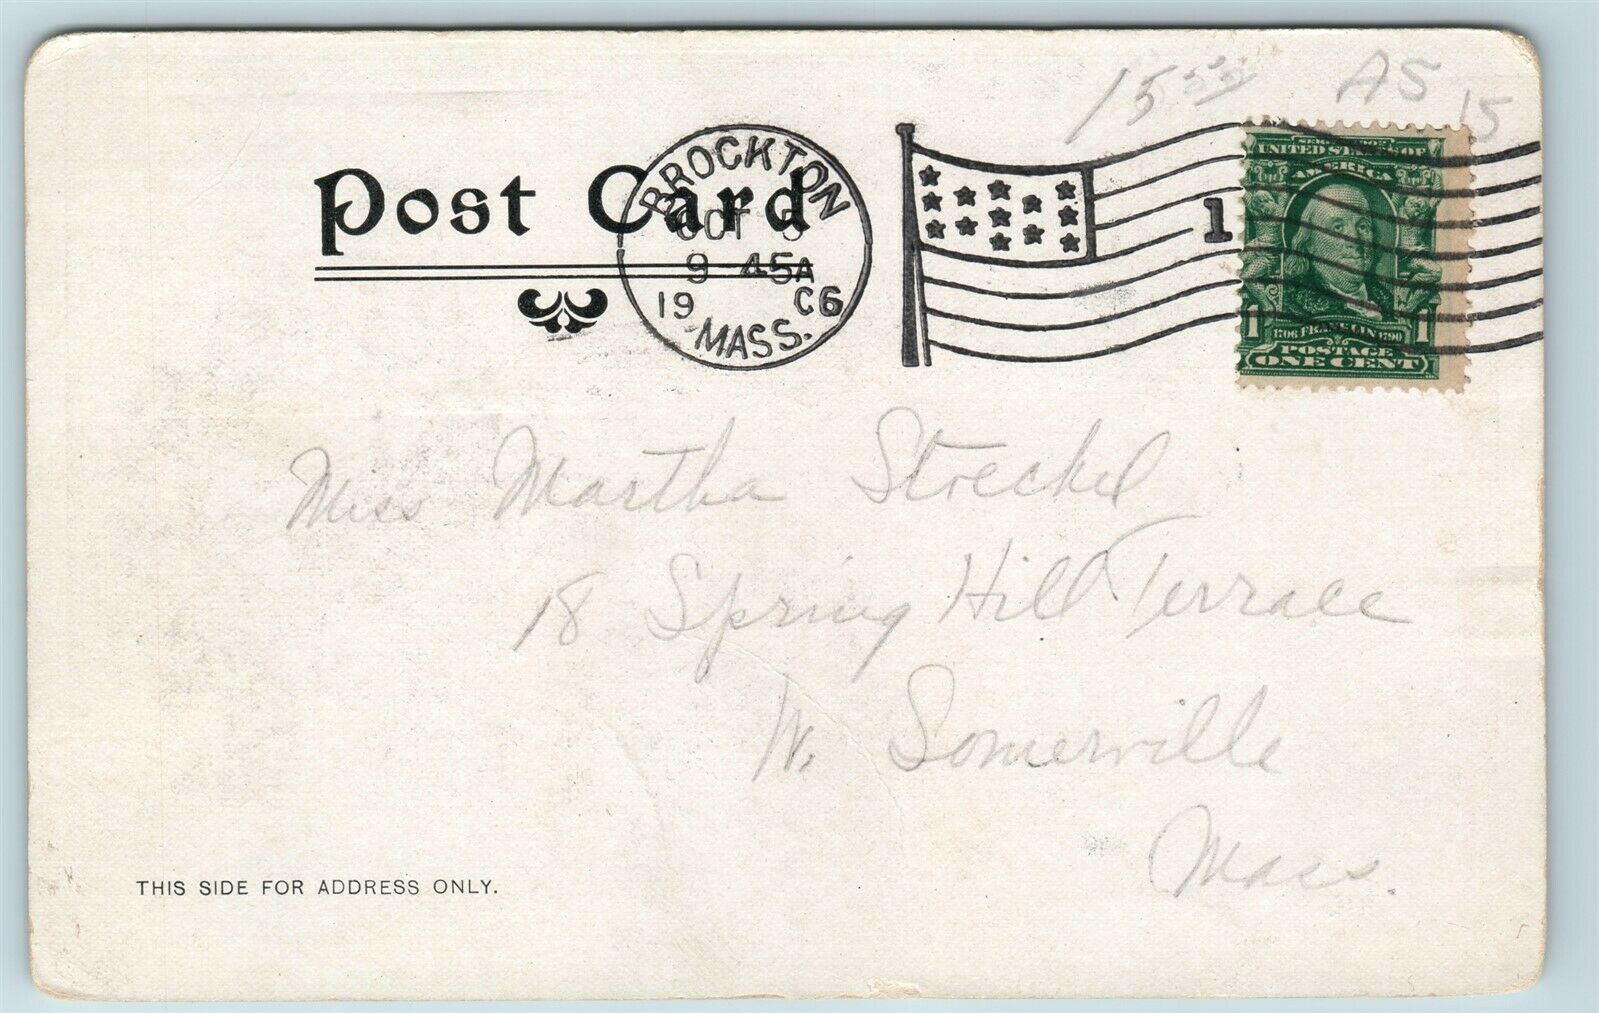 15
A5
15
Post Card
BROCKTON
OCT 5
9 45A
19 C6
MASS.
1
UNITED STATES OF
AMERICA
1 1706 FRANKLIN 1790 1
POSTAGE
ONE CENT
Miss Martha Streckel
18 Spring Hill Terrace
W. Somerville
Mass.
THIS SIDE FOR ADDRESS ONLY.